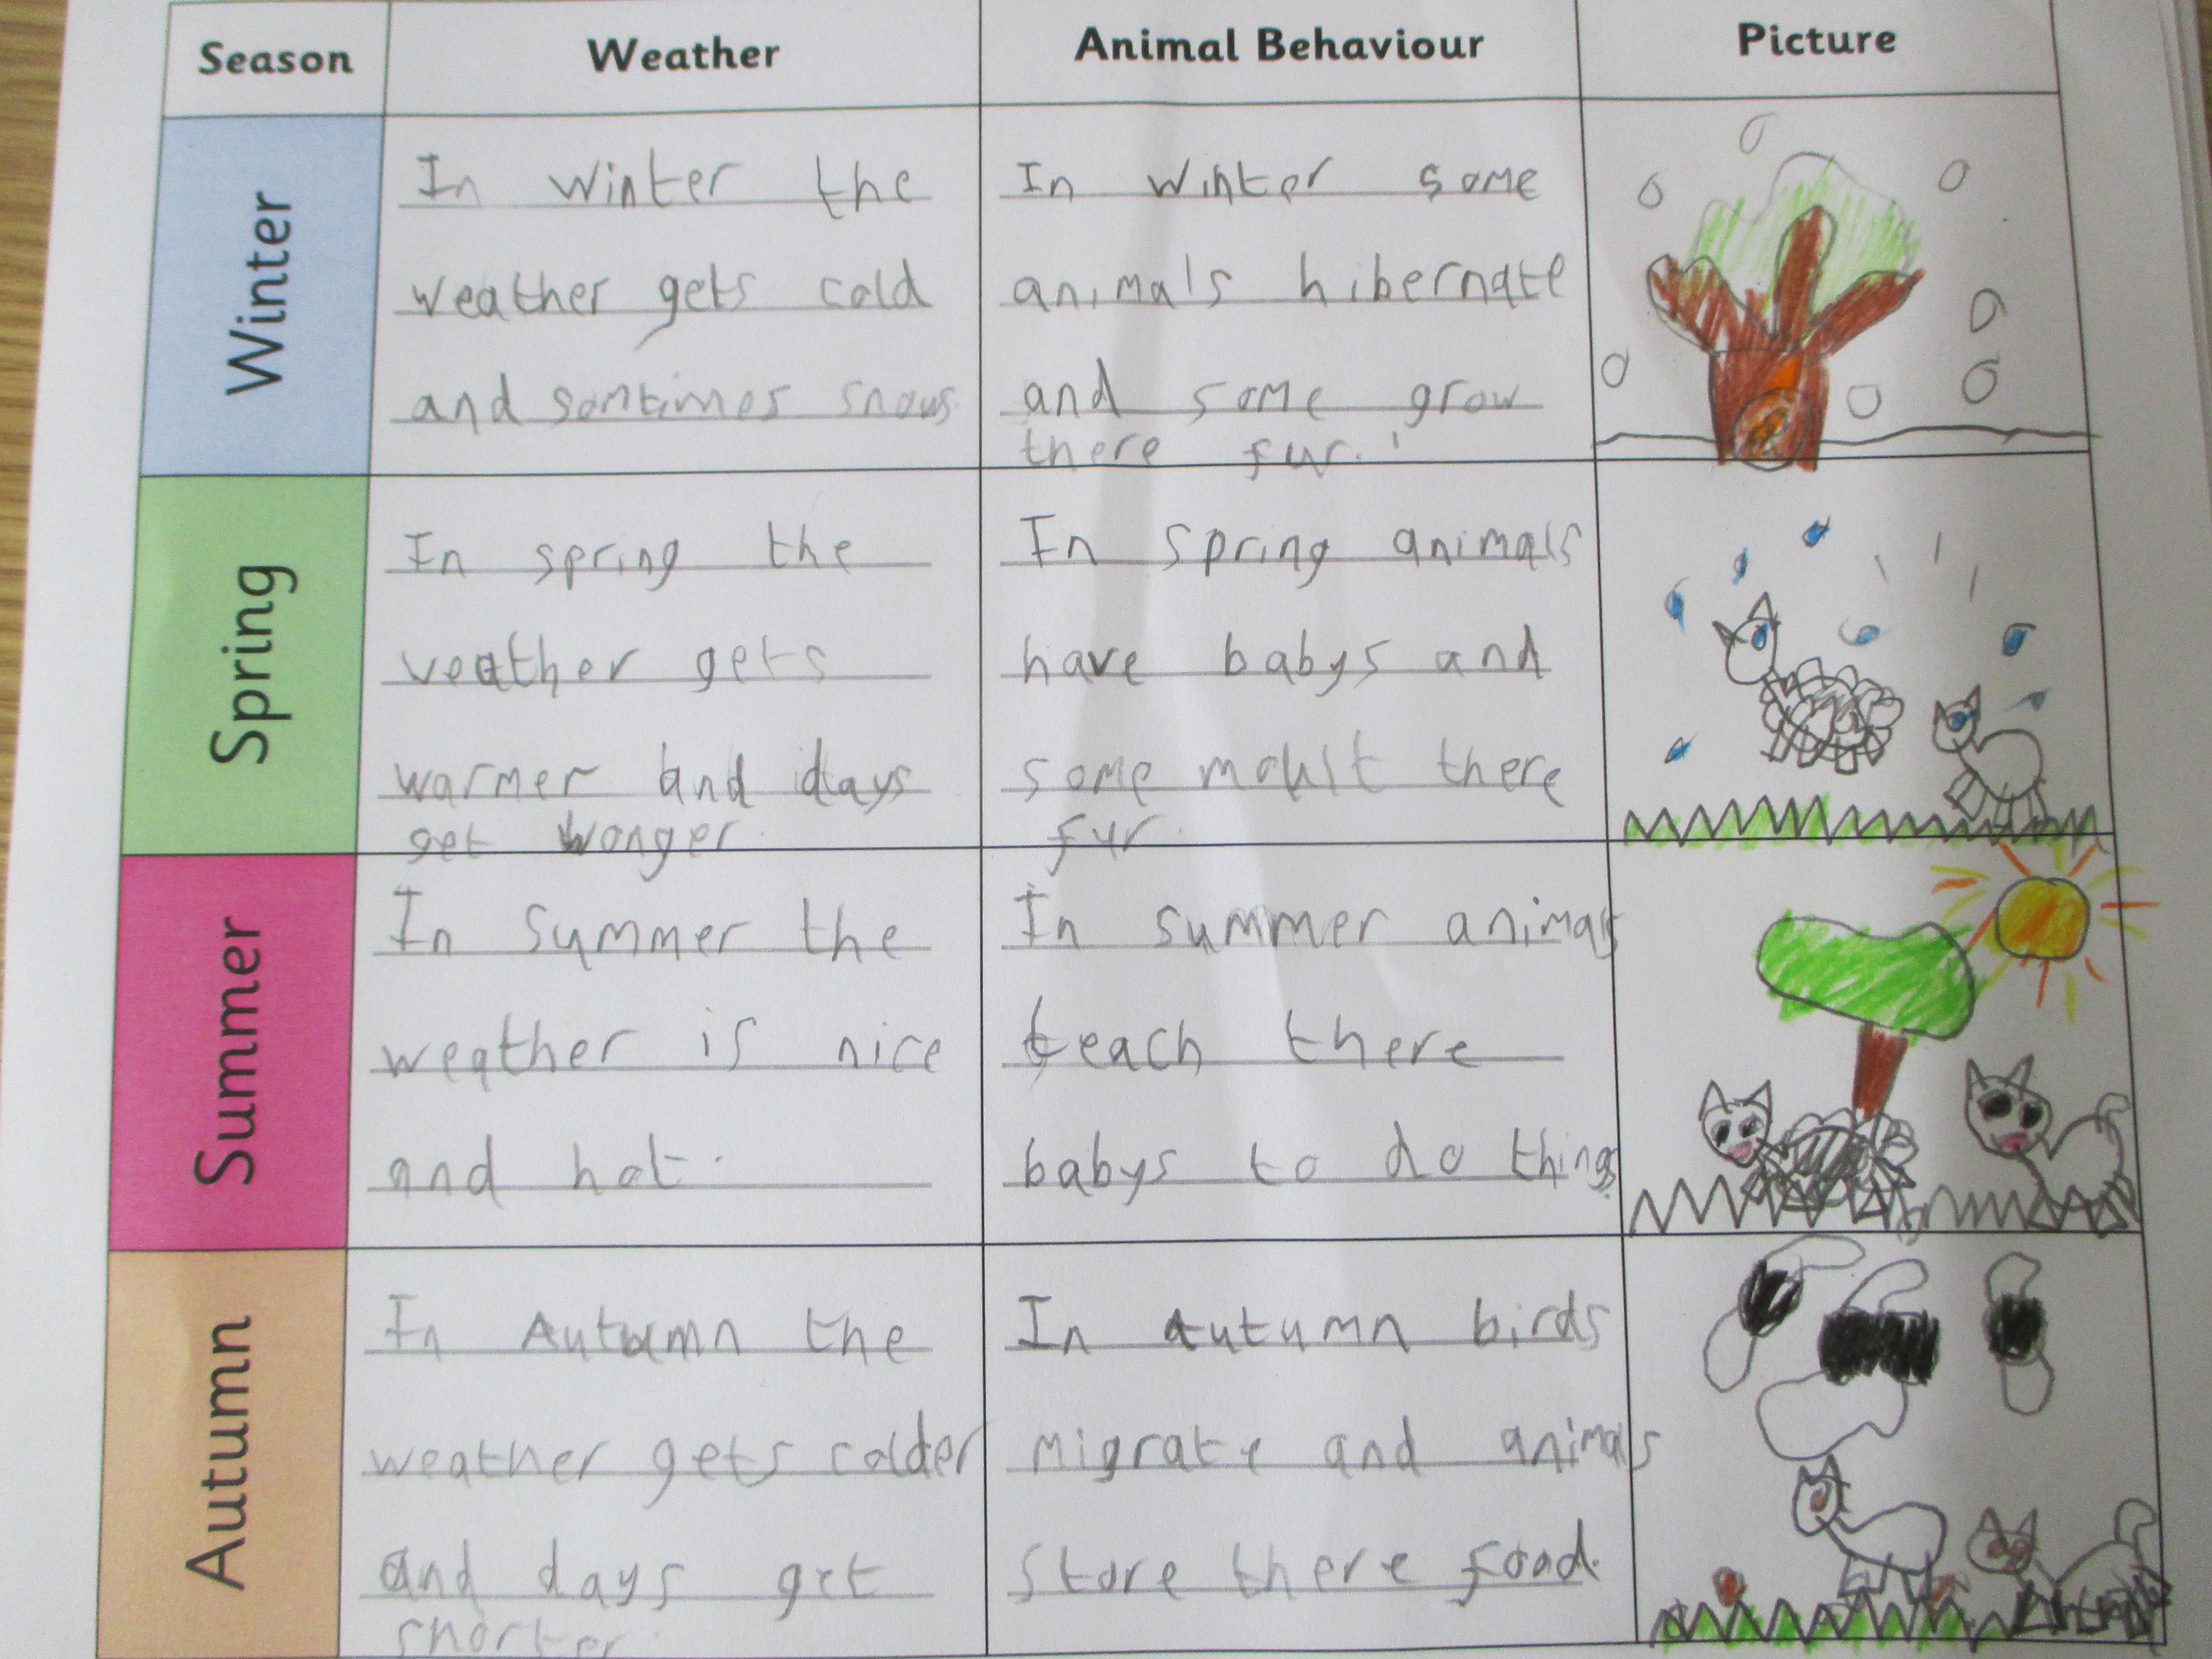 Season Weather Animal Behaviour Picture
Winter
In winter the
weather gets cold
and somtimes snows
In winter some
animals hibernate
and some grow
there fur.
Spring
In spring the
weather gets
warmer and days
get wonger.
In spring animals
have babys and
some moult there
fur.
Summer
In summer the
weather is nice
and hot.
In summer animals
teach there
babys to do things.
Autumn
In Autumn the
weather gets colder
and days get
shorter.
In autumn birds
migrate and animals
store there food.